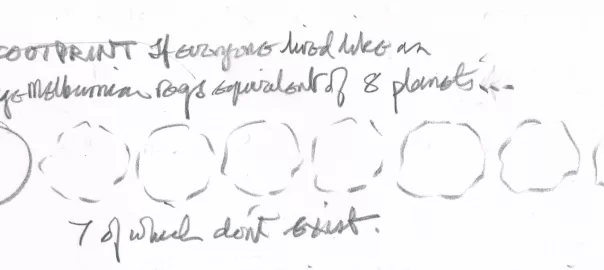 FOOTPRINT If everyone lived like an
ge Melburnian reqs equivalent of 8 planets...
7 of which don't exist.